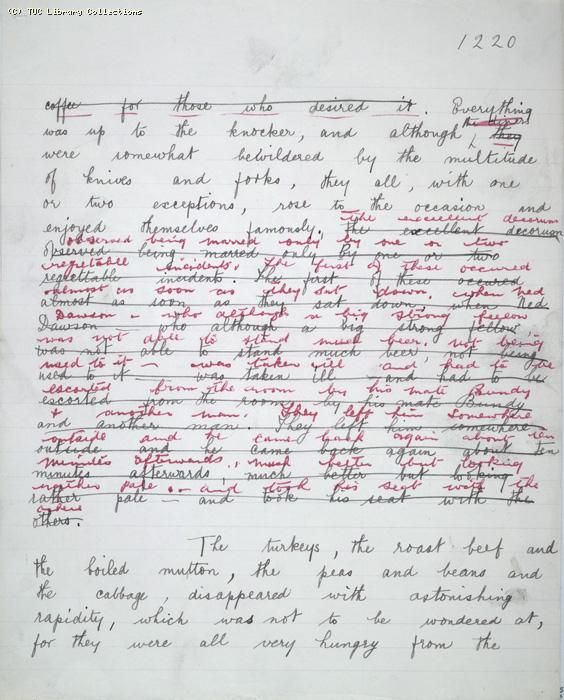 (C) TUC Library Collections
1220
coffee for those who desired it. Everything
the diners
was up to the knocker, and although they
were somewhat bewildered by the multitude
of knives and forks, they all, with one
or two exceptions, rose to the occasion and
the excellent decorum
enjoyed themselves famously. The excellent decorum
observed being marred only by one or two
observed being marred only by one or two
regrettable incidents. The first of these occured
regrettable incidents. The first of these occured
almost as soon as they sat down. when Ned
almost as soon as they sat down, when Ned
Dawson - who although a big strong fellow
Dawson — who although a big strong fellow,
was not able to stand much beer. not being
was not able to stand much beer, not being
used to it — was taken ill and had to be
used to it — was taken ill and had to be
escorted from the room by his mate Bundy
escorted from the room by his mate Bundy
& another man. They left him somewhere
and another man. They left him somewhere
outside and he came back again about ten
outside and he came back again about ten
minutes afterwards, much better but looking
minutes afterwards, much better but looking
rather pale — and took his seat with the
rather pale — and took his seat with the
others
others.
The turkeys, the roast beef and
the boiled mutton, the peas and beans and
the cabbage, disappeared with astonishing
rapidity, which was not to be wondered at,
for they were all very hungry from the